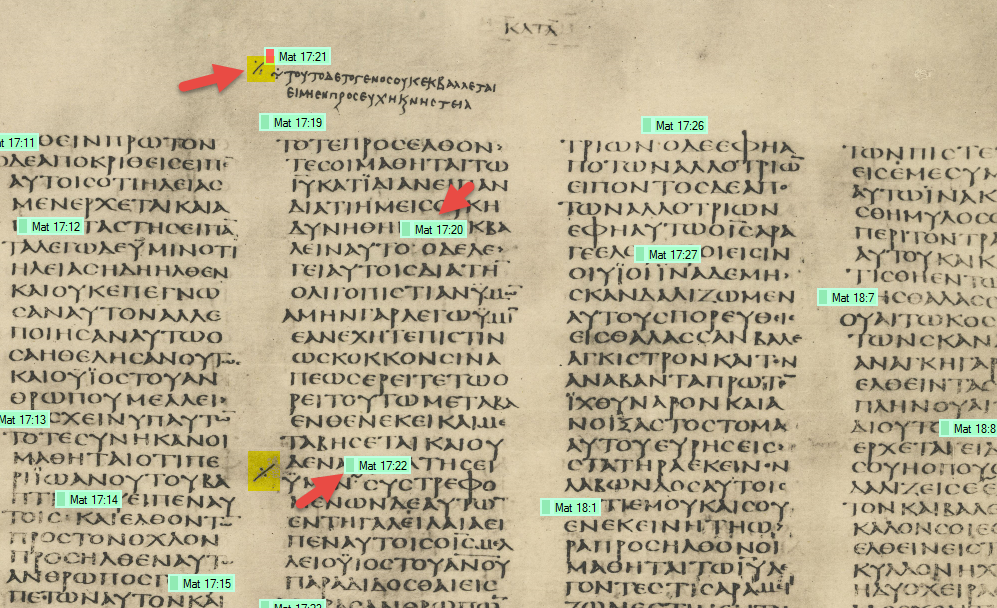 ΚΑΤΑ
Mat 17:21
ΤΟΥΤΟΔΕΤΟΓΕΝΟϹΟΥΚΕΚΒΑΛΛΕΤΑΙ
ΕΙΜΗΕΝΠΡΟϹΕΥΧΗΚΝΗϹΤΕΙΑ
17:11
ΑΥΤΟΙϹΟΤΙΗΛΕΙΑϹ
ΜΕΝΕΡΧΕΤΑΙΚΑΙΑ
Mat 17:12
ΤΑΛΕΓΩΔΕΫΜΙΝΟΤΙ
ΗΛΕΙΑϹΗΔΗΗΛΘΕΝ
ΚΑΙΟΥΚΕΠΕΓΝΩ
ϹΑΝΑΥΤΟΝΑΛΛΕ
ΠΟΙΗϹΑΝΑΥΤΩΟ
ϹΑΗΘΕΛΗϹΑΝΟΥΤ
ΚΑΙΟΫΙΟϹΤΟΥΑΝ
ΘΡΩΠΟΥΜΕΛΛΕΙ
Mat 17:13
ΠΑϹΧΕΙΝΥΠΑΥΤ
ΤΟΤΕϹΥΝΗΚΑΝΟΙ
ΜΑΘΗΤΑΙΟΤΙΠΕ
ΡΙΪΩΑΝΟΥΤΟΥΒΑ
Mat 17:14
ΕΙΠΕΝΑΥ
ΤΟΙϹ ΚΑΙΕΛΘΟΝΤ
ΠΡΟϹΤΟΝΟΧΛΟΝ
ΠΡΟϹΗΛΘΕΝΑΥΤ
ΑΝΘΡΩΠΟϹΓ
Mat 17:15
ΠΕΤΩΝΑΥΤΟΝΚΑΙ
Mat 17:19
ΤΟΤΕΠΡΟϹΕΛΘΟΝ
ΤΕϹΟΙΜΑΘΗΤΑΙΤΩ
ΙΥΚΑΤΙΔΙΑΝΕΙΠΑΝ
ΔΙΑΤΙΗΜΕΙϹΟΥΚΗ
ΔΥΝΗΘΗ
Mat 17:20
ΚΒΑ
ΛΕΙΝΑΥΤΟ·ΟΔΕΛΕ
ΓΕΙΑΥΤΟΙϹΔΙΑΤΗ
ΟΛΙΓΟΠΙϹΤΙΑΝΫΜ
ΑΜΗΝΓΑΡΛΕΓΩΫΜΙ
ΕΑΝΕΧΗΤΕΠΙϹΤΙΝ
ΩϹΚΟΚΚΟΝϹΙΝΑ
ΠΕΩϹΕΡΕΙΤΕΤΩΟ
ΡΕΙΤΟΥΤΩΜΕΤΑΒΑ
ΕΝΘΕΝΕΚΕΙΚΑΙΜΕ
ΤΑΒΗϹΕΤΑΙΚΑΙΟΥ
ΔΕΝΑ
Mat 17:22
ΤΗϹΕΙ
ϹΥϹΤΡΕΦΟ
ΜΕΝΩΝΔΕΑΥΤΩ
ΕΝΤΗΓΑΛΕΙΛΑΙΑΕΙ
ΠΕΝΑΥΤΟΙϹΟΙϹ
ΛΕΙΟΫΙΟϹΤΟΥΑΝΟΥ
ΠΑΡΑΔΙΔΟϹΘΑΙΕΙϹ
Mat 17:26
ΤΡΙΩΝ·ΟΔΕΕΦΗΑ
ΠΟΤΩΝΑΛΛΟΤΡΙΩ
ΕΙΠΟΝΤΟϹΔΕΑΠΟ
ΤΩΝΑΛΛΟΤΡΙΩΝ
ΕΦΗΑΥΤΩΟΙϹΑΡΑ
Mat 17:27
ΟΙΥΪΟΙΪΝΑΔΕΜΗ
ϹΚΑΝΔΑΛΙΖΩΜΕΝ
ΑΥΤΟΥϹΠΟΡΕΥΘΕΙ
ΕΙϹΘΑΛΑϹϹΑΝΒΑΛΕ
ΑΓΚΙϹΤΡΟΝΚΑΙΤΝ
ΑΝΑΒΑΝΤΑΠΡΩΤ
ΪΧΘΥΝΑΡΟΝΚΑΙΑ
ΝΟΙΞΑϹΤΟϹΤΟΜΑ
ΑΥΤΟΥΕΥΡΗϹΕΙϹ
ϹΤΑΤΗΡΑΕΚΕΙΝΝ
ΛΑΒΩΝΔΟϹΑΥΤΟΙϹ
Mat 18:1
ΤΙΕΜΟΥΚΑΙϹΟΥ
ΕΝΕΚΕΙΝΗΤΗΩ
ΡΑΠΡΟϹΗΛΘΟΝΟΙ
ΜΑΘΗΤΑΙΤΩΙΥΛΕ
ΓΟΝΤΕϹΤΙϹΑΡΑ
ΤΩΝΠΙϹΤΕ
ΕΙϹΕΜΕϹΥΜ
ΑΥΤΩΪΝΑΚ
ϹΘΗΜΥΛΟϹΟ
ΠΕΡΙΤΟΝΤΡΑ
ΑΥΤΟΥΚΑΙΚ
ΤΙϹΘΗΕΝΤΩ
Mat 18:7
ΗϹΘΑΛΑϹϹ
ΟΥΑΙΤΩΚΟϹ
ΤΩΝϹΚΑΝ
ΑΝΑΓΚΗΓΑΡ
ΕΛΘΕΙΝΤΑϹ
ΠΛΗΝΟΥΑΙ
ΔΙΟΥΤ
Mat 18:8
ΕΡΧΕΤΑΙΕΙ
ϹΟΥΗΟΠΟΥϹ
ΔΑΛΙΖΕΙϹΕΕ
ΤΟΝΚΑΙΒΑΛ
ΚΑΛΟΝϹΟΙΕϹ
ΕΛΘΕΙΝΕΙϹΤ
ΚΥΛΛΟΝΗΧ